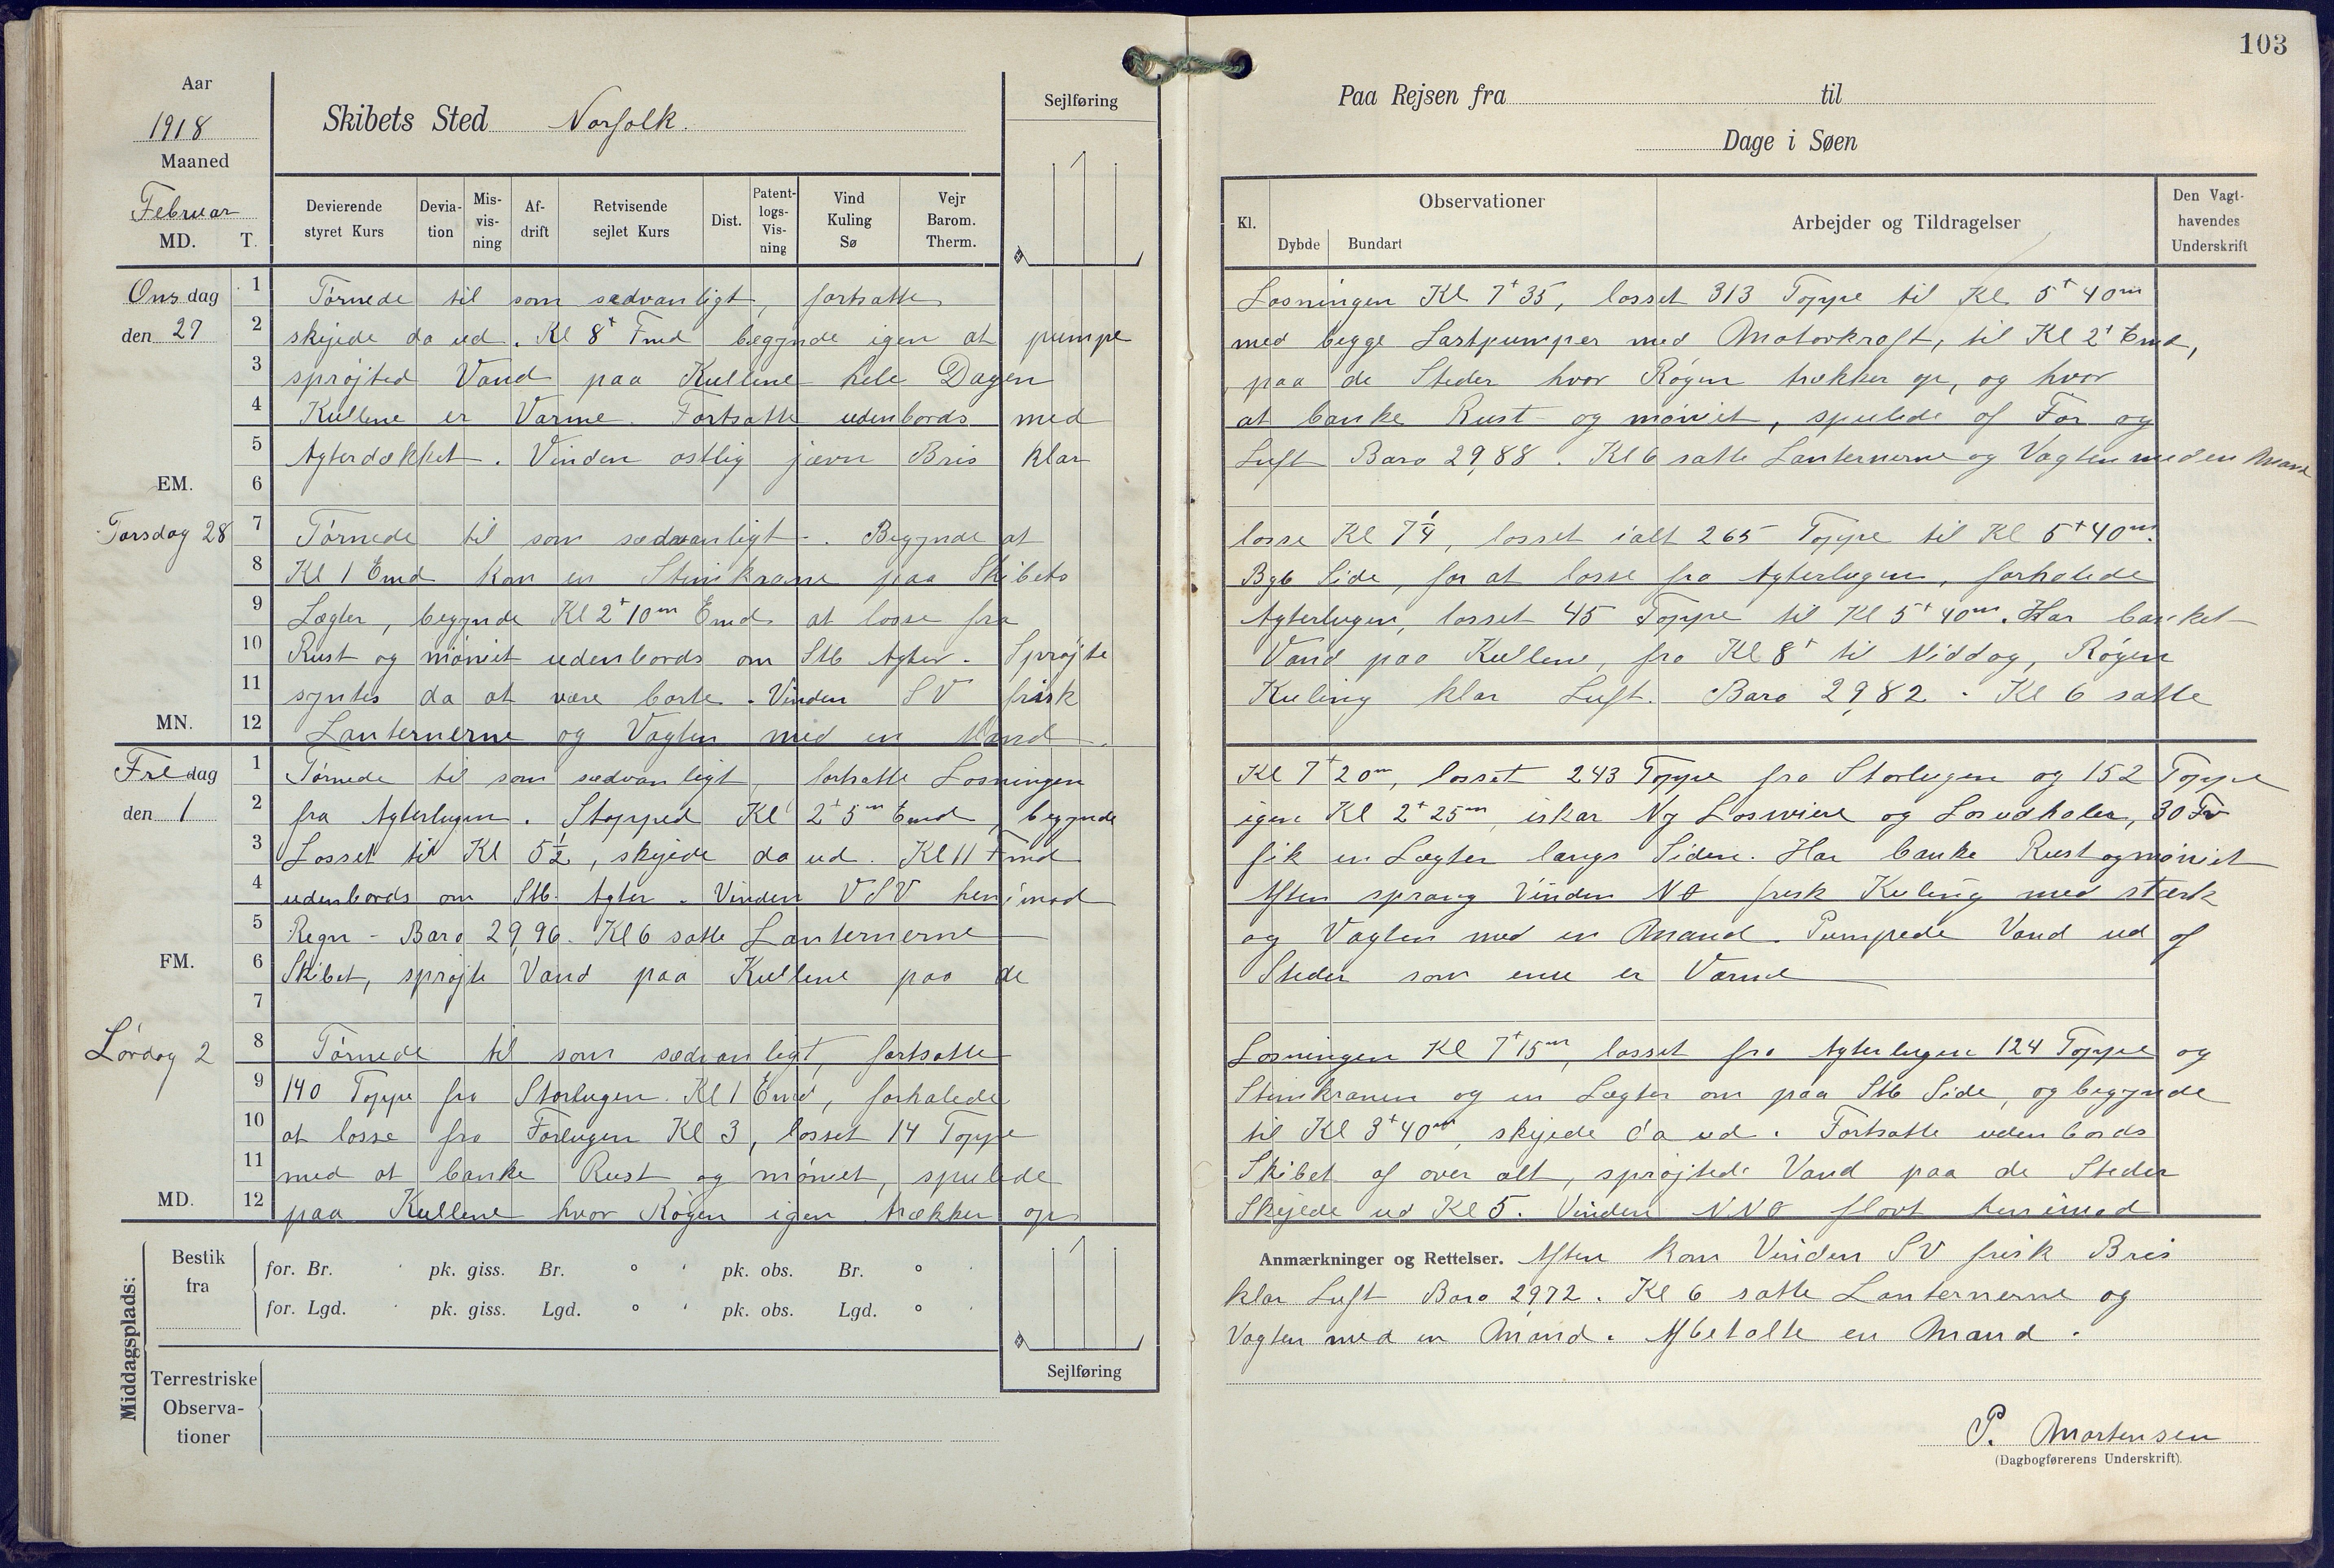 103
Aar
1918
Maaned
Februar
MD. T.
Skibets Sted Norfolk.
Sejlføring
Paa Rejsen fra til
Dage i Søen
Devierende styret Kurs
Devia-tion
Mis-vis-ning
Af-drift
Retvisende sejlet Kurs
Dist.
Patent-logs-Vis-ning
Vind Kuling Sø
Vejr Barom. Therm.
Kl.
Observationer
Dybde Bundart
Arbejder og Tildragelser
Den Vagt-havendes Underskrift
Onsdag 1 Tørnede til som sædvanligt, fortsatte Losningen Kl 7+35, losset 313 Toppe til Kl 5+40m
den 27 2 skejede da ud. Kl 8+ Fmd begynde igen at pumpe med begge Lastpumper med Motorkraft, til Kl 2+ Emd,
3 sprøjted Vand paa Kullene hele Dagen paa de Steder hvor Røgen trækker op, og hvor
4 Kullene er Varme. Fortsatte udenbords med at banke Rust og møniet, spulede af For og
5 Agterdækket. Vinden østlig jævn Bris klar Luft Baro 29,88. Kl 6 satte Lanternerne og Vagten med en Mand
EM. 6
Torsdag 28 7 Tørnede til som sædvanligt. Begynde at losse Kl 7 1/4, losset ialt 265 Toppe til Kl 5+40m.
8 Kl 1 Emd kom en Stimkrane paa Skibets Bgb Side, for at losse fra Agterlugen, forhalede
9 Lægter, begynde Kl 2+10m Emd at losse fra Agterlugen, losset 45 Toppe til Kl 5+40m. Har banket
10 Rust og møniet udenbords om Stb Agter. Sprøjte Vand paa Kullene, fra Kl 8+ til Middag, Røgen
11 syntes da at være borte. Vinden SV frisk Kuling klar Luft. Baro 29,82. Kl 6 satte
MN. 12 Lanternerne og Vagten med en Mand.
Fredag 1 Tørnede til som sædvanligt, fortsatte Losningen Kl 7+20m, losset 243 Toppe fra Storlugen og 152 Toppe
den 1 2 fra Agterlugen. Stopped Kl 2+5m Emd, begynde igen Kl 2+25m, iskar Ny Loswiere og Losudhaler, 30 Fv
3 Losset til Kl 5 1/2, skejede da ud. Kl 11 Fmd fik en Lægter langs Siden. Har banke Rust og møniet
4 udenbords om Stb. Agter. Vinden VSV henimod Aften sprang Vinden NO frisk Kuling med stærk
5 Regn - Baro 29,96. Kl 6 satte Lanternerne og Vagten med en Mand. Pumpede Vand ud af
FM. 6 Skibet, sprøjte Vand paa Kullene paa de Steder som ene er Varme
7
Lørdag 2 8 Tørnede til som sædvanligt, fortsatte Losningen Kl 7+15m, losset fra Agterlugen 124 Toppe og
9 140 Toppe fra Storlugen. Kl 1 Emd, forhalede Stimkranen og en Lægter om paa Stb Side, og begynde
10 at losse fra Forlugen Kl 3, losset 14 Toppe til Kl 3+40m, skejede da ud. Fortsatte udenbords
11 med at banke Rust og møniet, spulede Skibet af over alt, sprøjtede Vand paa de Steder
MD. 12 paa Kullene hvor Røgen igen trækker op Skejede ud Kl 5. Vinden NNO flovt henimod
Anmærkninger og Rettelser. Aften kom Vinden SV frisk Bris
klar Luft Baro 2972. Kl 6 satte Lanternerne og
Vagten med en Mand. Afbetalte en Mand.
Middagsplads:
Bestik fra
for. Br. ' pk. giss. Br. ° ' pk. obs. Br. ° '
for. Lgd. ' pk. giss. Lgd. ° ' pk. obs. Lgd. ° '
Sejlføring
Terrestriske Observa-tioner
P. Mortensen
(Dagbogførerens Underskrift).